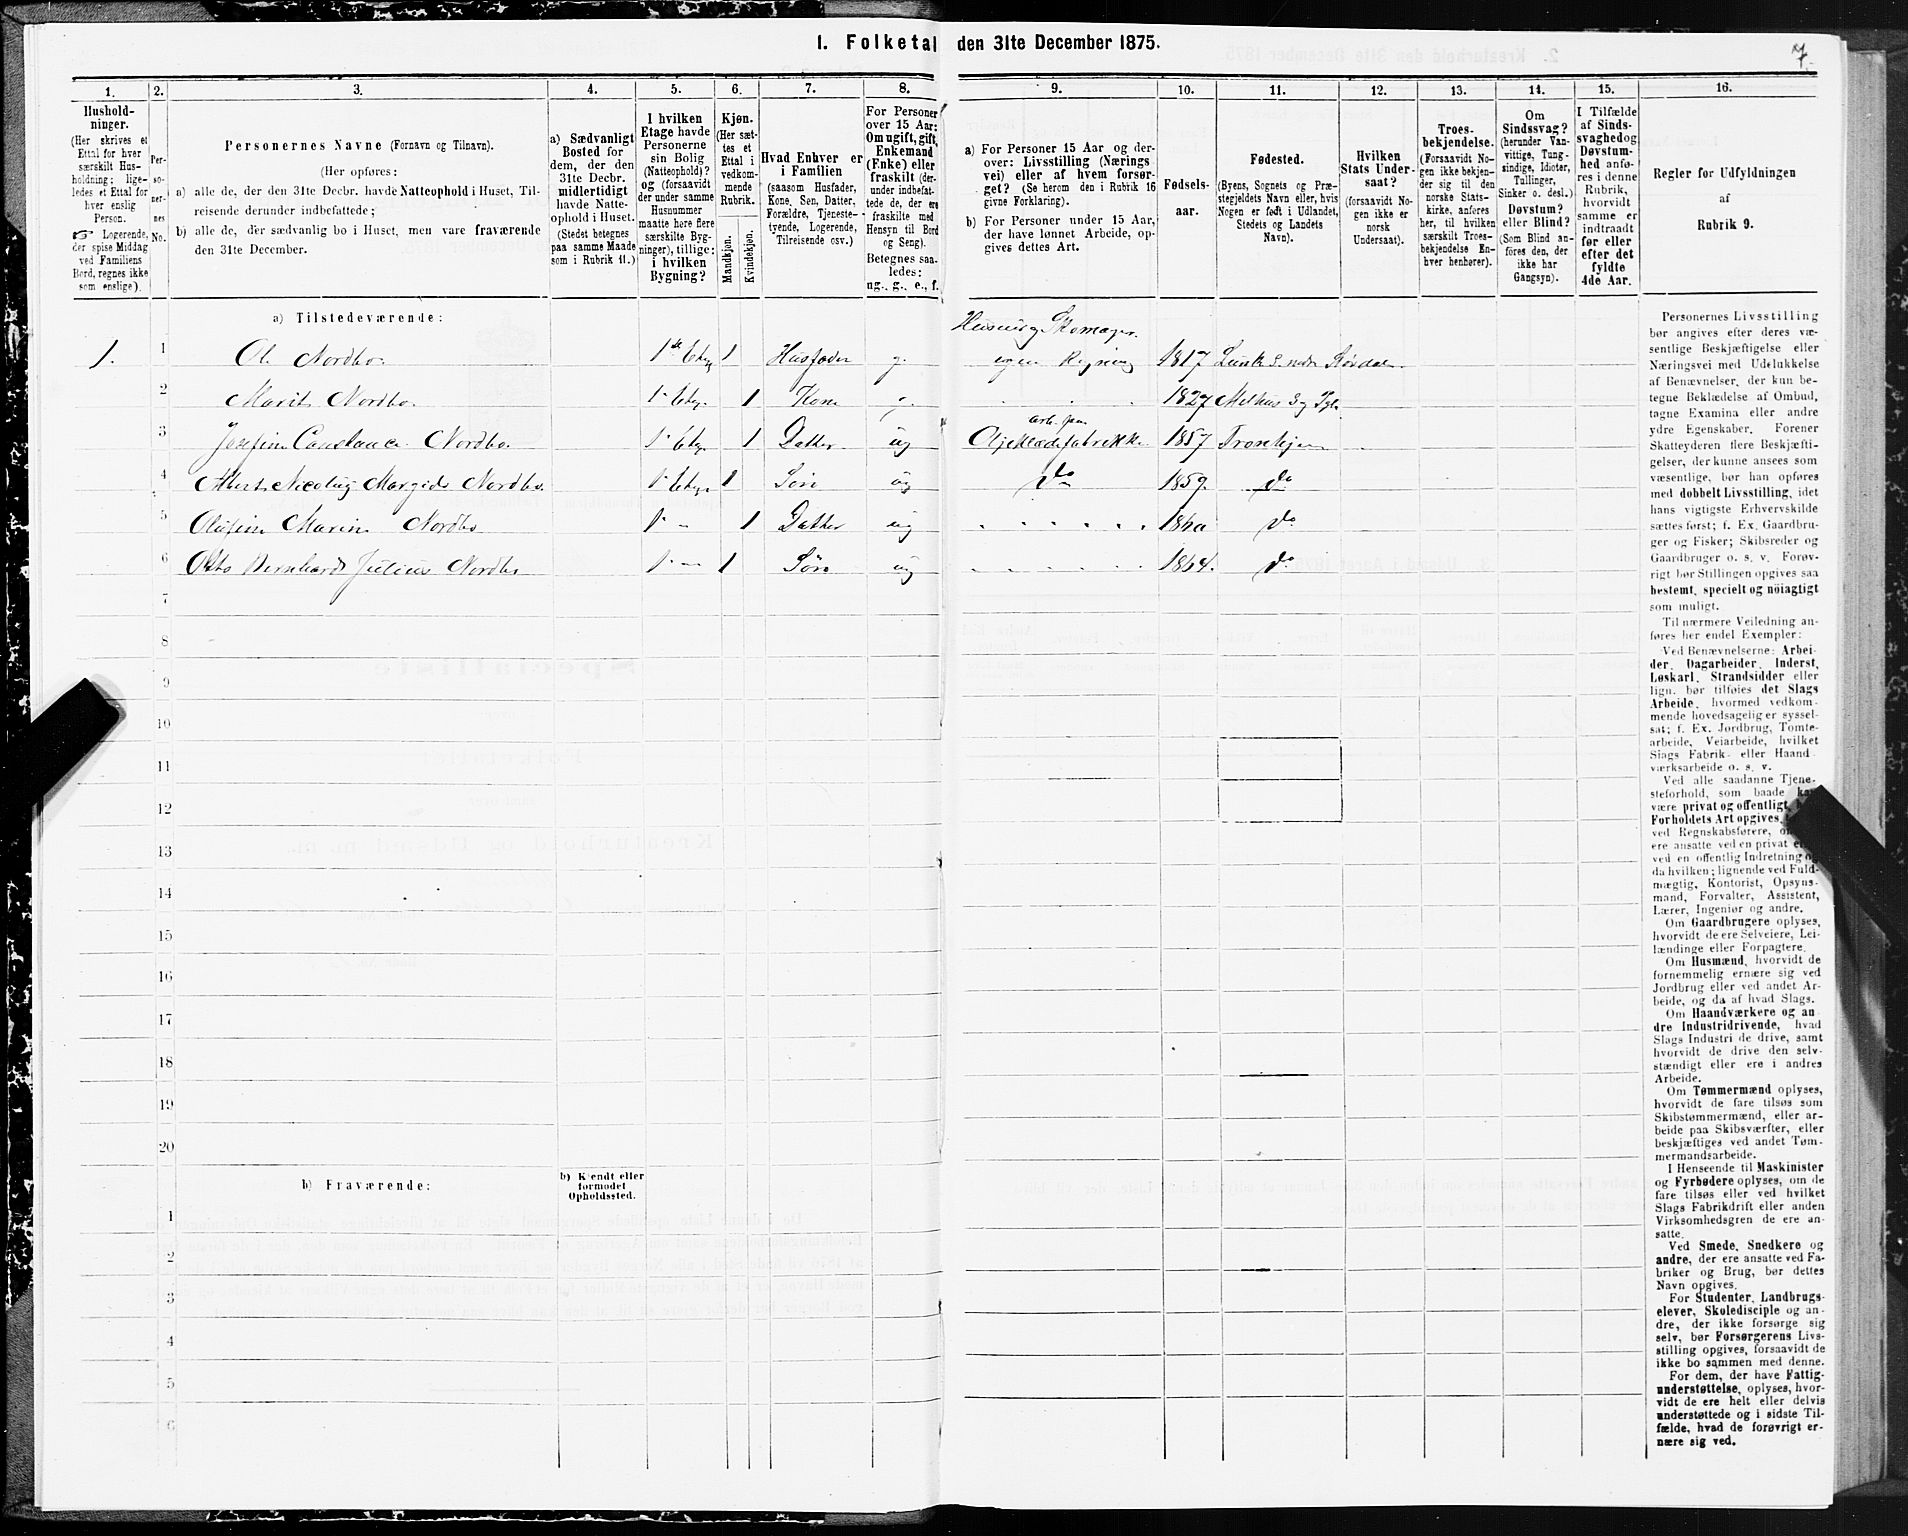 1. Folketal den 31te December 1875.
7.
1.
2.
3.
4.
5.
6.
7.
8.
9.
10.
11.
12.
13.
14.
15.
16.
Hushold-
ninger.
(Her skrives et
Ettal for hver
særskilt Hus-
holdning; lige-
ledes et Ettal for
hver enslig
Person.
☞ Logerende,
der spise Middag
ved Familiens
Bord, regnes ikke
som enslige).
Per-
so-
ner-
nes
No.
Personernes Navne (Fornavn og Tilnavn).
(Her opføres:
a) alle de, der den 31te Decbr. havde Natteophold i Huset, Til-
reisende derunder indbefattede;
b) alle de, der sædvanlig bo i Huset, men vare fraværende
den 31te December.
a) Sædvanligt
Bosted for
dem, der den
31te Decbr.
midlertidigt
havde Natte-
ophold i Huset.
(Stedet betegnes
paa samme Maade
som i Rubrik 11.)
I hvilken
Etage havde
Personerne
sin Bolig
(Natteophold)?
og (forsaavidt
der under samme
Husnummer
maatte høre flere
særskilte Byg-
ninger), tillige:
i hvilken
Bygning?
Kjøn.
(Her sæt-
tes et
Ettal i
vedkom-
mende
Rubrik.)
Mandkjøn.
Kvindekjøn.
Hvad Enhver er
i Familien
(saasom Husfader,
Kone, Søn, Datter,
Forældre, Tjeneste-
tyende, Logerende,
Tilreisende osv.)
For Personer
over 15 Aar:
Om ugift, gift,
Enkemand
(Enke) eller
fraskilt (der-
under indbefat-
tede de, der ere
fraskilte med
Hensyn til Bord
og Seng).
Betegnes saa-
ledes:
ug., g., e., f.
a) For Personer 15 Aar og der-
over: Livsstilling (Nærings
vei) eller af hvem forsør-
get? (Se herom den i Rubrik 16
givne Forklaring).
b) For Personer under 15 Aar,
der have lønnet Arbeide, op-
gives dettes Art.
Fødsels-
aar.
Fødested.
(Byens, Sognets og Præ-
stegjeldets Navn eller, hvis
Nogen er født i Udlandet,
Stedets og Landets
Navn).
Hvilken
Stats Under-
saat?
(forsaavidt No-
gen ikke er
norsk
Undersaat).
Troes-
bekjendelse.
(Forsaavidt No-
gen ikke bekjen-
der sig til den
norske Stats-
kirke, anføres
her, til hvilken
særskilt Troes-
bekjendelse En-
hver henhører).
Om
Sindssvag?
(herunder Van-
vittige, Tung-
sindige, Idioter,
Tullinger,
Sinker o. desl.)
Døvstum?
eller Blind?
(Som Blind an-
føres den, der
ikke har
Gangsyn).
I Tilfælde
af Sinds-
svaghed og
Døvstum-
hed anfø-
res i denne
Rubrik,
hvorvidt
samme er
indtraadt
før eller
efter det
fyldte
4de Aar.
Regler for Udfyldningen
af
Rubrik 9.
a) Tilstedeværende:
Skomager
1. 1 Nordbo 1 Husfader g. egen Regning 1817
2 Marit Nordbo 1 Kone 1827 Melhus
arb. paa
3 Josefine Nordbo 1 Datter ug 1857
4 Nordbo 1 Søn ug do 1859 do
5 Nordbo 1 Datter ug 1860 do
6 Otto Bernhard Julius Nordbo 1 Søn ug 1864. do
7
8
9
10
11
12
13
14
15
16
17
18
19
20
b) Fraværende:
b) Kjendt eller
formodet
Opholdssted.
1
2
3
4
5
6
Personernes Livsstilling
bør angives efter deres væ-
sentlige Beskjæftigelse eller
Næringsvei med Udelukkelse
af Benævnelser, der kun be-
tegne Beklædelse af Ombud,
tagne Examina eller andre
ydre Egenskaber. Forener
Skatteyderen flere Beskjæfti-
gelser, der kunne ansees som
væsentlige, bør han opføres
med dobbelt Livsstilling, idet
hans vigtigste Erhvervskilde
sættes først; f. Ex. Gaardbru-
ger og Fisker; Skibsreder og
Gaardbruger o. s. v. Forøv-
rigt bør Stillingen opgives saa
bestemt, specielt og nöiagtigt
som muligt.
Til nærmere Veiledning an-
føres her endel Exempler:
Ved Benævnelserne: Arbei-
der, Dagarbeider, Inderst,
Løskarl, Strandsidder eller
lign. bør tilføies det Slags
Arbeide, hvormed vedkom-
mende hovedsagelig er syssel-
sat; f. Ex. Jordbrug, Tomte-
arbeide, Veiarbeide, hvilket
Slags Fabrik- eller Haand-
værksarbeide o. s. v.
Ved alle saadanne Tjene-
steforhold, som baade
være privat og offentligt,
Forholdets Art opgives,
ved Regnskabsførere,
ere ansatte ved en privat
ved en offentlig Indretning
da hvilken; lignende ved Fuld-
mægtig, Kontorist, Opsyns-
mand, Forvalter, Assistent,
Lærer, Ingeniør og andre.
Om Gaardbrugere oplyses,
hvorvidt de ere Selveiere, Lei-
lændinge eller Forpagtere.
Om Husmænd, hvorvidt de
fornemmelig ernære sig ved
Jordbrug eller ved andet Ar-
beide, og da af hvad Slags.
Om Haandværkere og an-
dre Industridrivende, hvad
Slags Industri de drive, samt
hvorvidt de drive den selv-
stændigt eller ere i andres
Arbeide.
Om Tømmermænd oplyses,
hvorvidt de fare tilsøs som
Skibstømmermænd, eller ar-
beide paa Skibsværfter, eller
beskjæftiges ved andet Tøm-
mermandsarbeide.
I Henseende til Maskinister
og Fyrbødere oplyses, om de
fare tilsøs eller ved hvilket
Slags Fabrikdrift eller anden
Virksomhedsgren de ere an-
satte.
Ved Smede, Snedkere og
andre, der ere ansatte ved Fa-
briker og Brug, bør dettes
Navn opgives.
For Studenter, Landbrugs-
elever, Skoledisciple og an-
dre, der ikke forsørge sig
selv, bør Forsørgerens Livs-
stilling opgives, forsaavidt de
ikke bo sammen med denne.
For dem, der have Fattig-
understøttelse, oplyses, hvor-
vidt de ere helt eller delvis
understøttede og i sidste Til-
fælde, hvad de forøvrigt er-
nære sig ved.